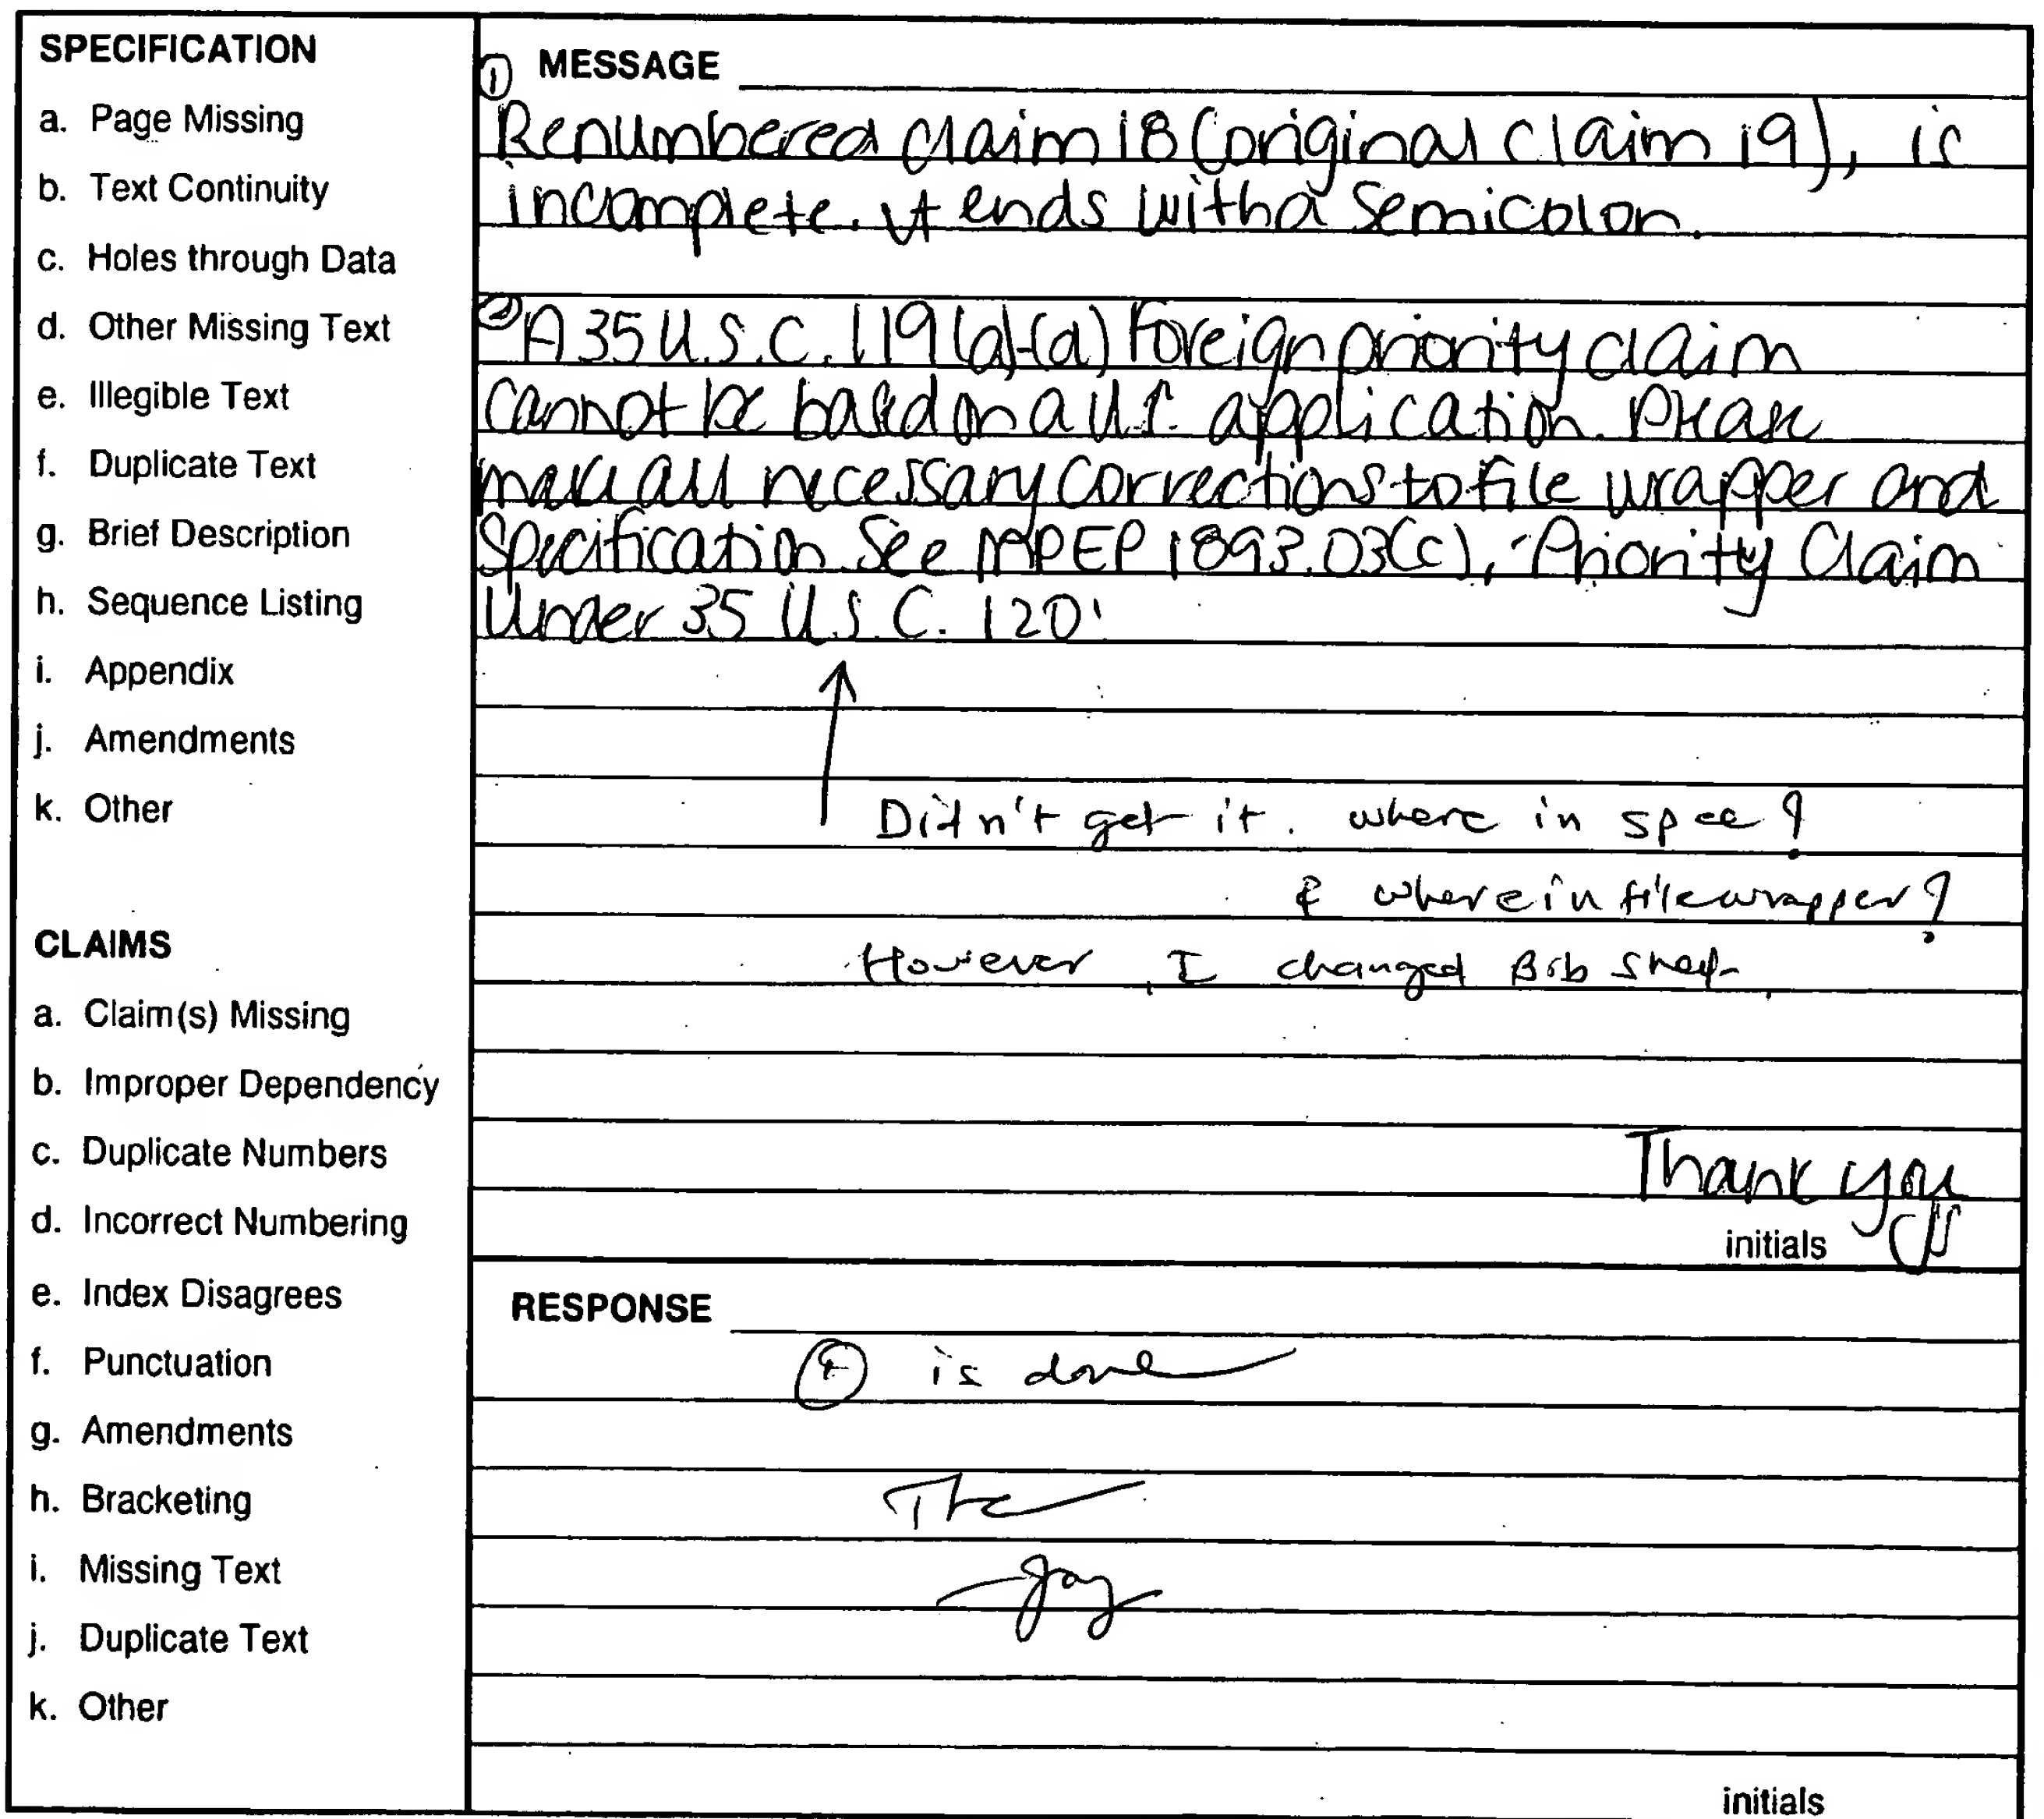 SPECIFICATION
a. Page Missing
b. Text Continuity
c. Holes through Data
d. Other Missing Text
e. Illegible Text
f. Duplicate Text
g. Brief Description
h. Sequence Listing
i. Appendix
j. Amendments
k. Other
CLAIMS
a. Claim(s) Missing
b. Improper Dependency
c. Duplicate Numbers
d. Incorrect Numbering
e. Index Disagrees
f. Punctuation
g. Amendments
h. Bracketing
i. Missing Text
j. Duplicate Text
k. Other
① MESSAGE
Renumbered claim 18 (original claim 19), is
incomplete. It ends with a semicolon.
② A 35 U.S.C. 119 (a)-(d) foreign priority claim
cannot be based on a U.S. application. Please
make all necessary corrections to file wrapper and
specification. See MPEP 1893.03(c), "Priority Claim
Under 35 U.S.C. 120"
Didn't get it. where in spec?
& where in file wrapper?
However, I changed Bib sheet.
Thank you
initials
RESPONSE
is done
Jay
initials